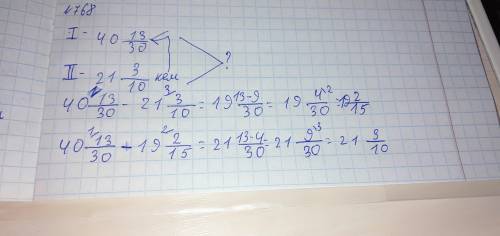 №768
I - 40 13/30
?
II - 21 3/10 кем
40 13/30 - 21 3/10 = 19 13-9/30 = 19 4/30 = 19 2/15
40 13/30 - 19 2/15 = 21 13-4/30 = 21 9/30 = 21 3/10